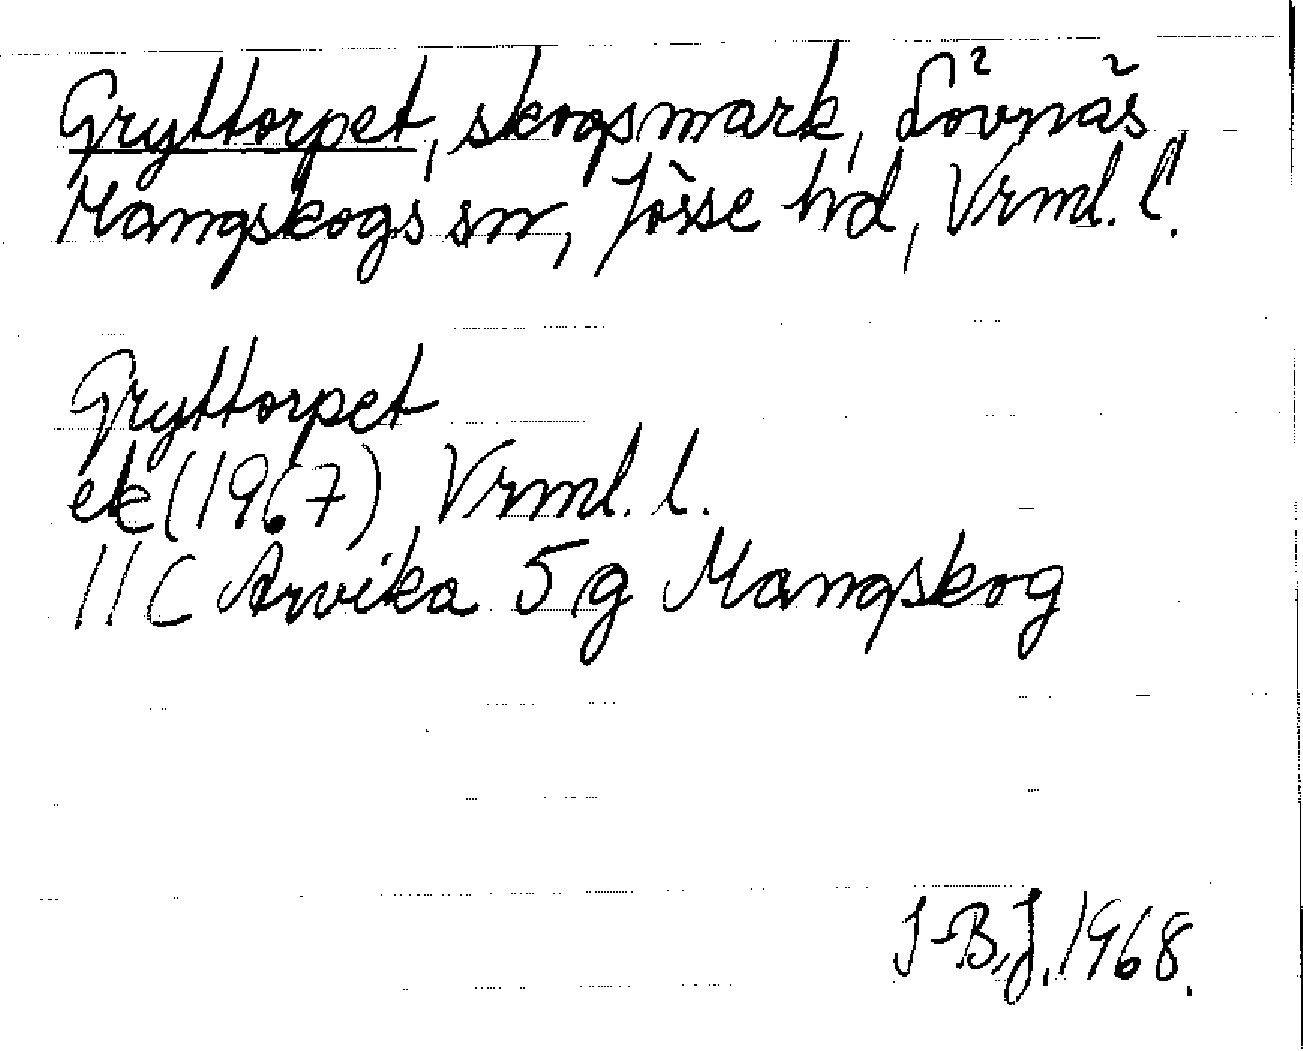 Gryttorpet, skogsmark, Lövnäs,
Mangskogs sn, Jösse hd, Vrml. l.
Gryttorpet
ek (1967) Vrml. l.
11 C Arvika 5 g Mangskog
J-B.J. 1968.